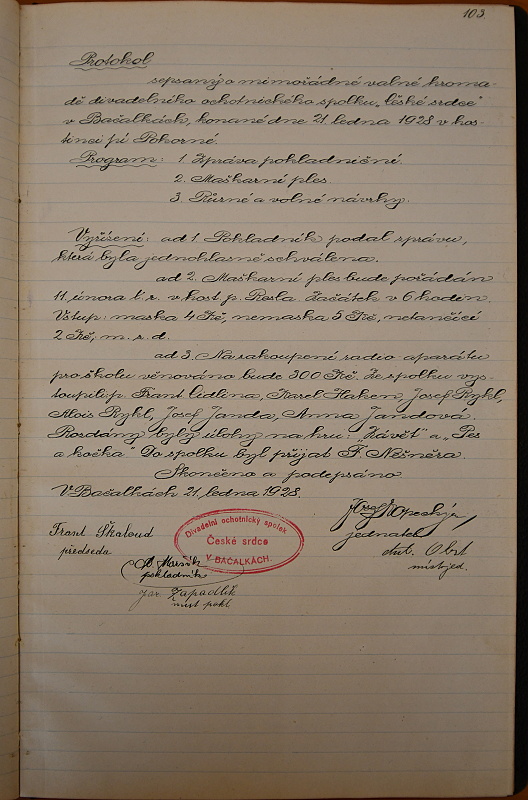 103
Protokol
sepsaný o mimořádné valné hroma-
dě divadelního ochotnického spolku „České srdce"
v Bačalkách, konané dne 21. ledna 1928 v hos-
tinci pí Pokorné.
Program: 1. Zpráva pokladniční.
2. Maškarní ples.
3. Různé a volné návrhy.
Vyřízení: ad 1. Pokladník podal zprávu,
která byla jednohlasně schválena.
ad 2. Maškarní ples bude pořádán
11. února t. r. v host. p. Resla. Začátek v 6 hodin.
Vstup: maska 4 Kč, nemaska 5 Kč, netančící
2 Kč, m. r. d.
ad 3. Na zakoupení radio aparátu
pro školu věnováno bude 300 Kč. Ze spolku vys-
toupili p. Frant. Cidlina, Karel Haken, Josef Rykl,
Alois Rykl, Josef Janda, Anna Jandová.
Rozdány byly úlohy na hru: „Závět" a „Pes
a kočka" Do spolku byl přijat F. Nešněra.
Skončeno a podepsáno
V Bačalkách 21. ledna 1928.
Frant Škaloud
předseda
Divadelní ochotnický spolek
České srdce
V BAČALKÁCH.
Josef
jednatel
Obst
místjed.
pokladník
Jar. Zapadlík
míst pokl